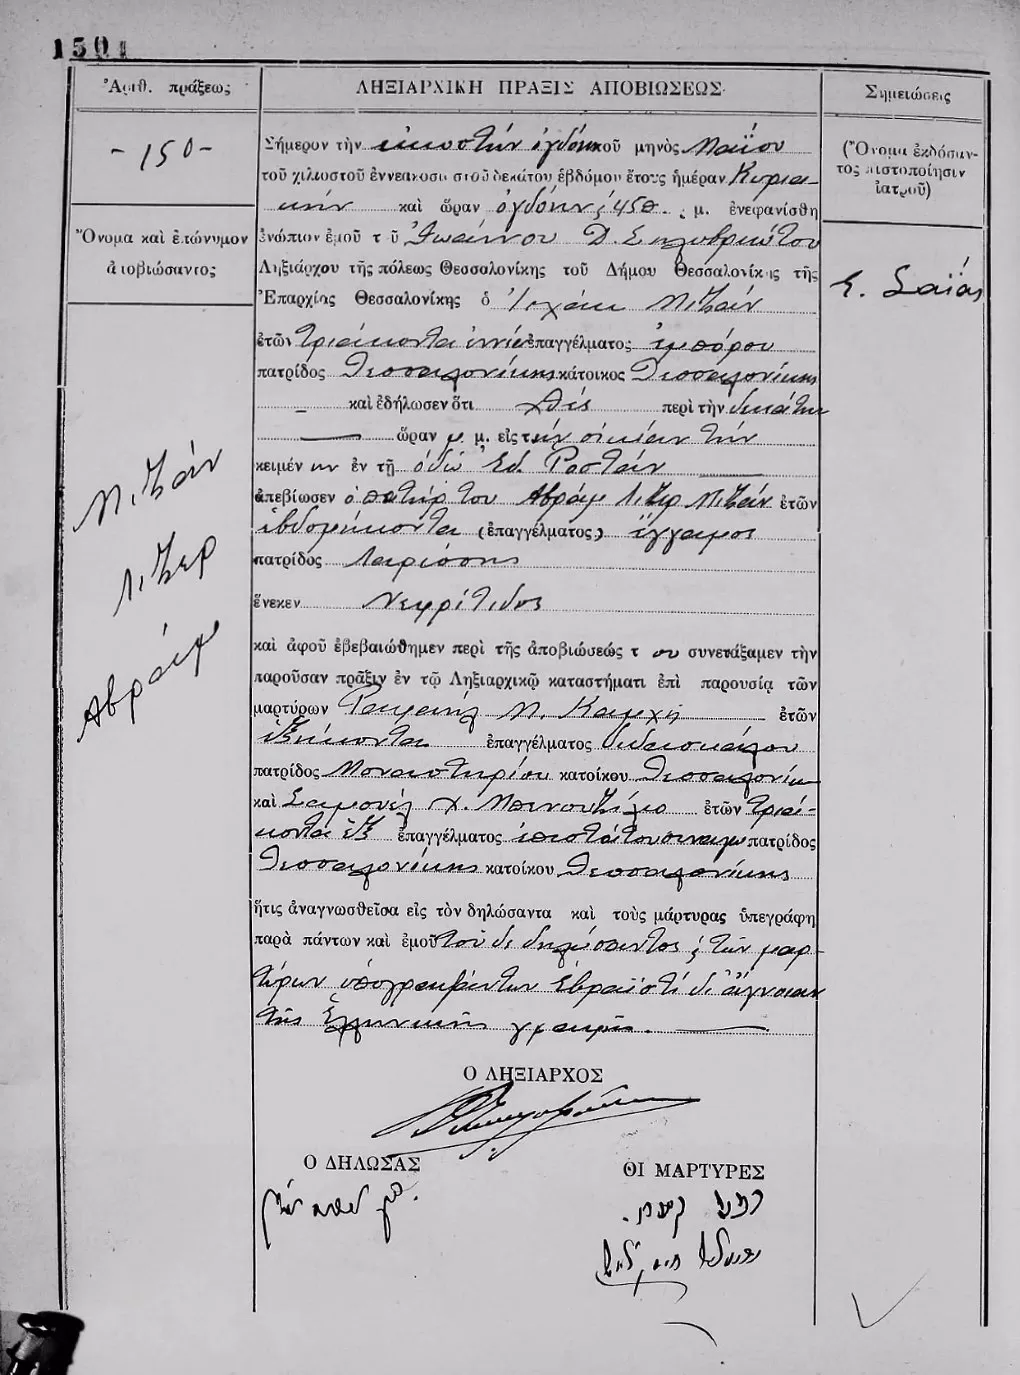 1501
Ἀριθ. πράξεως
ΛΗΞΙΑΡΧΙΚΗ ΠΡΑΞΙΣ ΑΠΟΒΙΩΣΕΩΣ
Σημειώσεις
- 150 -
(Ὄνομα ἐκδόσαντος πιστοποίησιν ἰατροῦ)
Ὄνομα καὶ ἐπώνυμον ἀποβιώσαντος
Σ. Σαΐας
Μιζάν
Λιζερ
Αβραάμ
Σήμερον τὴν εἰκοστὴν ὀγδόην τοῦ μηνὸς Μαΐου
τοῦ χιλιοστοῦ ἐννεακοσιοστοῦ δεκάτου ἑβδόμου ἔτους ἡμέραν Κυρια-
κὴν καὶ ὥραν ὀγδόην ; 45 π. μ. ἐνεφανίσθη
ἐνώπιον ἐμοῦ τ οῦ Ἰωάννου Δ. Σηλυβριώτου
Ληξιάρχου τῆς πόλεως Θεσσαλονίκης τοῦ Δήμου Θεσσαλονίκης τῆς
Ἐπαρχίας Θεσσαλονίκης ὁ Ἰσχάκ Μιζάν
ἐτῶν τριάκοντα ἐννέα ἐπαγγέλματος ἐμπόρου
πατρίδος Θεσσαλονίκης κάτοικος Θεσσαλονίκης
— καὶ ἐδήλωσεν ὅτι χθὲς περὶ τὴν δεκάτην
— ὥραν μ. μ. εἰς τὴν οἰκίαν τὴν
κειμέν ην ἐν τῇ ὁδῷ Ἐδ. Ροστάν
ἀπεβίωσεν ὁ πατήρ του Αβραάμ Λιζερ Μιζάν ἐτῶν
ἑβδομήκοντα (ἐπαγγέλματος) ἔγγαμος
πατρίδος Λαρίσσης
ἕνεκεν Νεφρίτιδος
καὶ ἀφοῦ ἐβεβαιώθημεν περὶ τῆς ἀποβιώσεώς τ ου συνετάξαμεν τὴν
παροῦσαν πρᾶξιν ἐν τῷ Ληξιαρχικῷ καταστήματι ἐπὶ παρουσίᾳ τῶν
μαρτύρων Ραφαὴλ Μ. Καμχῆ ἐτῶν
ἑξήκοντα ἐπαγγέλματος διδασκάλου
πατρίδος Μοναστηρίου κατοίκου Θεσσαλονίκη
καὶ Σαμουὲλ Χ. ἐτῶν τριά-
κοντα ἓξ ἐπαγγέλματος ἐπιστάτου συναγω πατρίδος
Θεσσαλονίκης κατοίκου Θεσσαλονίκης
ἥτις ἀναγνωσθεῖσα εἰς τὸν δηλώσαντα καὶ τοὺς μάρτυρας ὑπεγράφη
παρὰ πάντων καὶ ἐμοῦ τοῦ δὲ δηλώσαντος ; τῶν μαρ-
τύρων ὑπογραψάντων Ἑβραϊστὶ δι' ἄγνοιαν
τῆς Ἑλληνικῆς γραφῆς. —
Ο ΛΗΞΙΑΡΧΟΣ
Ο ΔΗΛΩΣΑΣ
ΟΙ ΜΑΡΤΥΡΕΣ